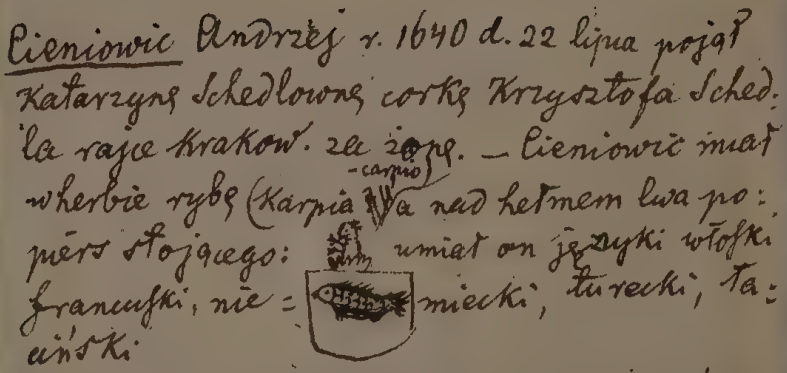 Cieniowic Andrzej r. 1640 d. 22 lipca pojął
Katarzynę Schedlownę corkę Krzysztofa Sched:
la rajce Krakow. za żonę. — Cieniowic miał
-carpio
w herbie rybę (Karpia a nad hełmem lwa po:
piers stojącego: umiał on języki włoski
francuski, nie = miecki, turecki, ła:
ciński